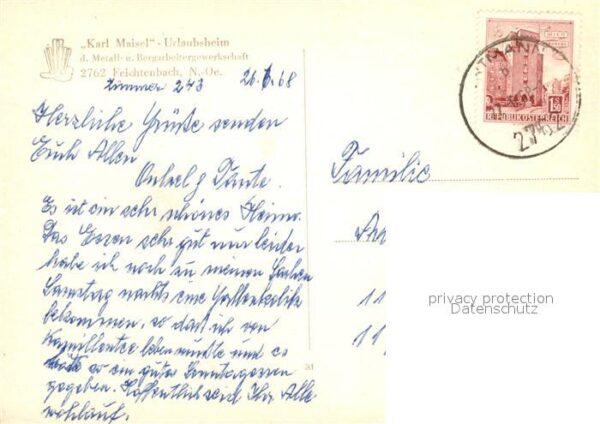 „Karl Maisel"-Urlaubsheim
d. Metall- u. Bergarbeitergewerkschaft
2762 Feichtenbach, N.-Oe.
Zimmer 243 26.6.68
Herzliche Grüße senden
Euch Allen
Onkel & Tante.
Es ist ein sehr schönes Heim.
Das Essen sehr gut nur leider
habe ich noch zu meinen Sachen
Samstag nachts eine Gallenkolik
bekommen, so daß ich von
Kamillentee leben mußte und es
so ein gutes Sonntagessen
gegeben. Hoffentlich seid Ihr Alle
wohlauf.
31
REPUBLIK ÖSTERREICH
Familie
11
privacy protection
Datenschutz
11